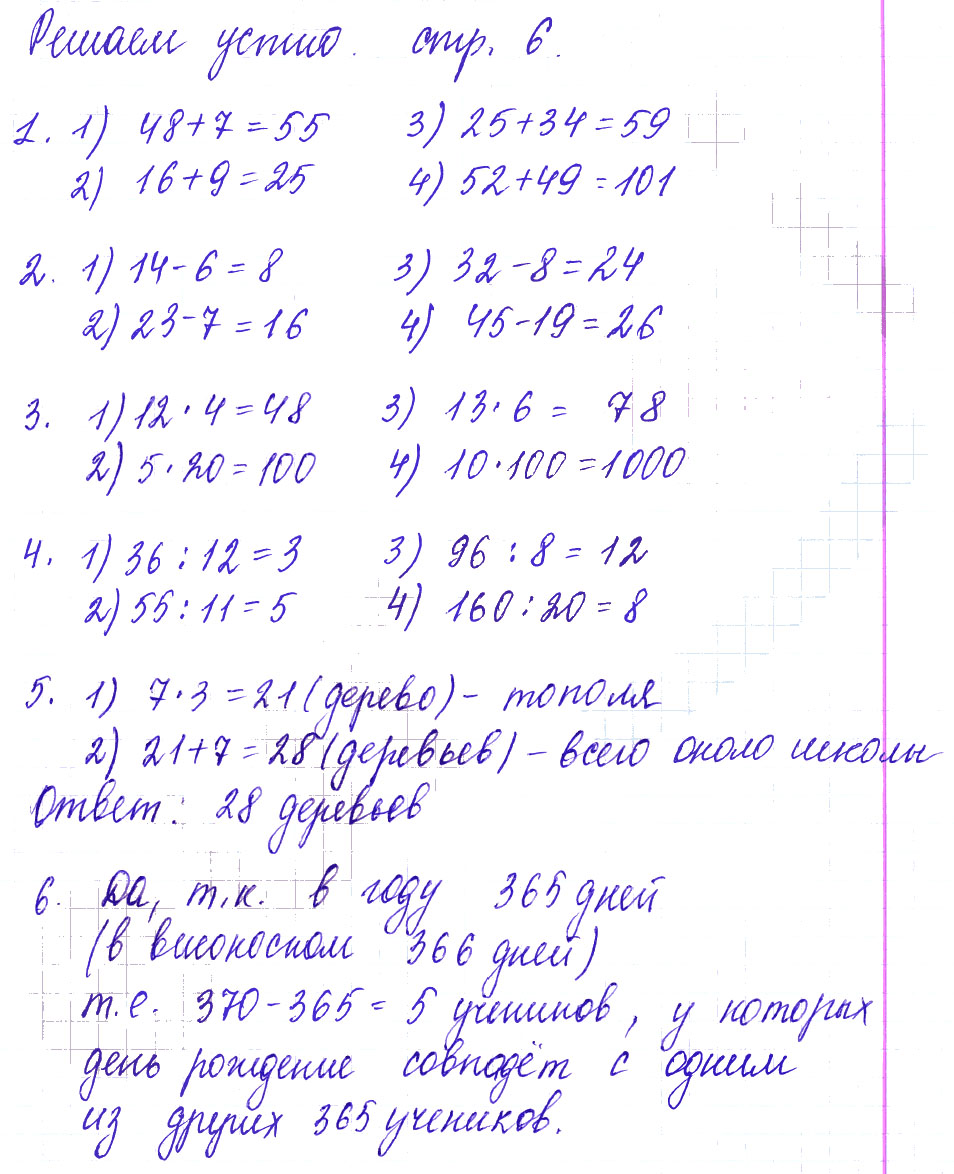 Решаем устно. стр. 6.
1. 1) 48+7=55 3) 25+34=59
2) 16+9=25 4) 52+49=101
2. 1) 14-6=8 3) 32-8=24
2) 23-7=16 4) 45-19=26
3. 1) 12·4=48 3) 13·6= 78
2) 5·20=100 4) 10·100=1000
4. 1) 36:12=3 3) 96:8=12
2) 55:11=5 4) 160:20=8
5. 1) 7·3=21 (дерево) - тополя
2) 21+7=28 (деревьев) - всего около школы
Ответ: 28 деревьев
6. Да, т.к. в году 365 дней
(в високосном 366 дней)
т.е. 370-365=5 учеников, у которых
день рождение совпадёт с одним
из других 365 учеников.